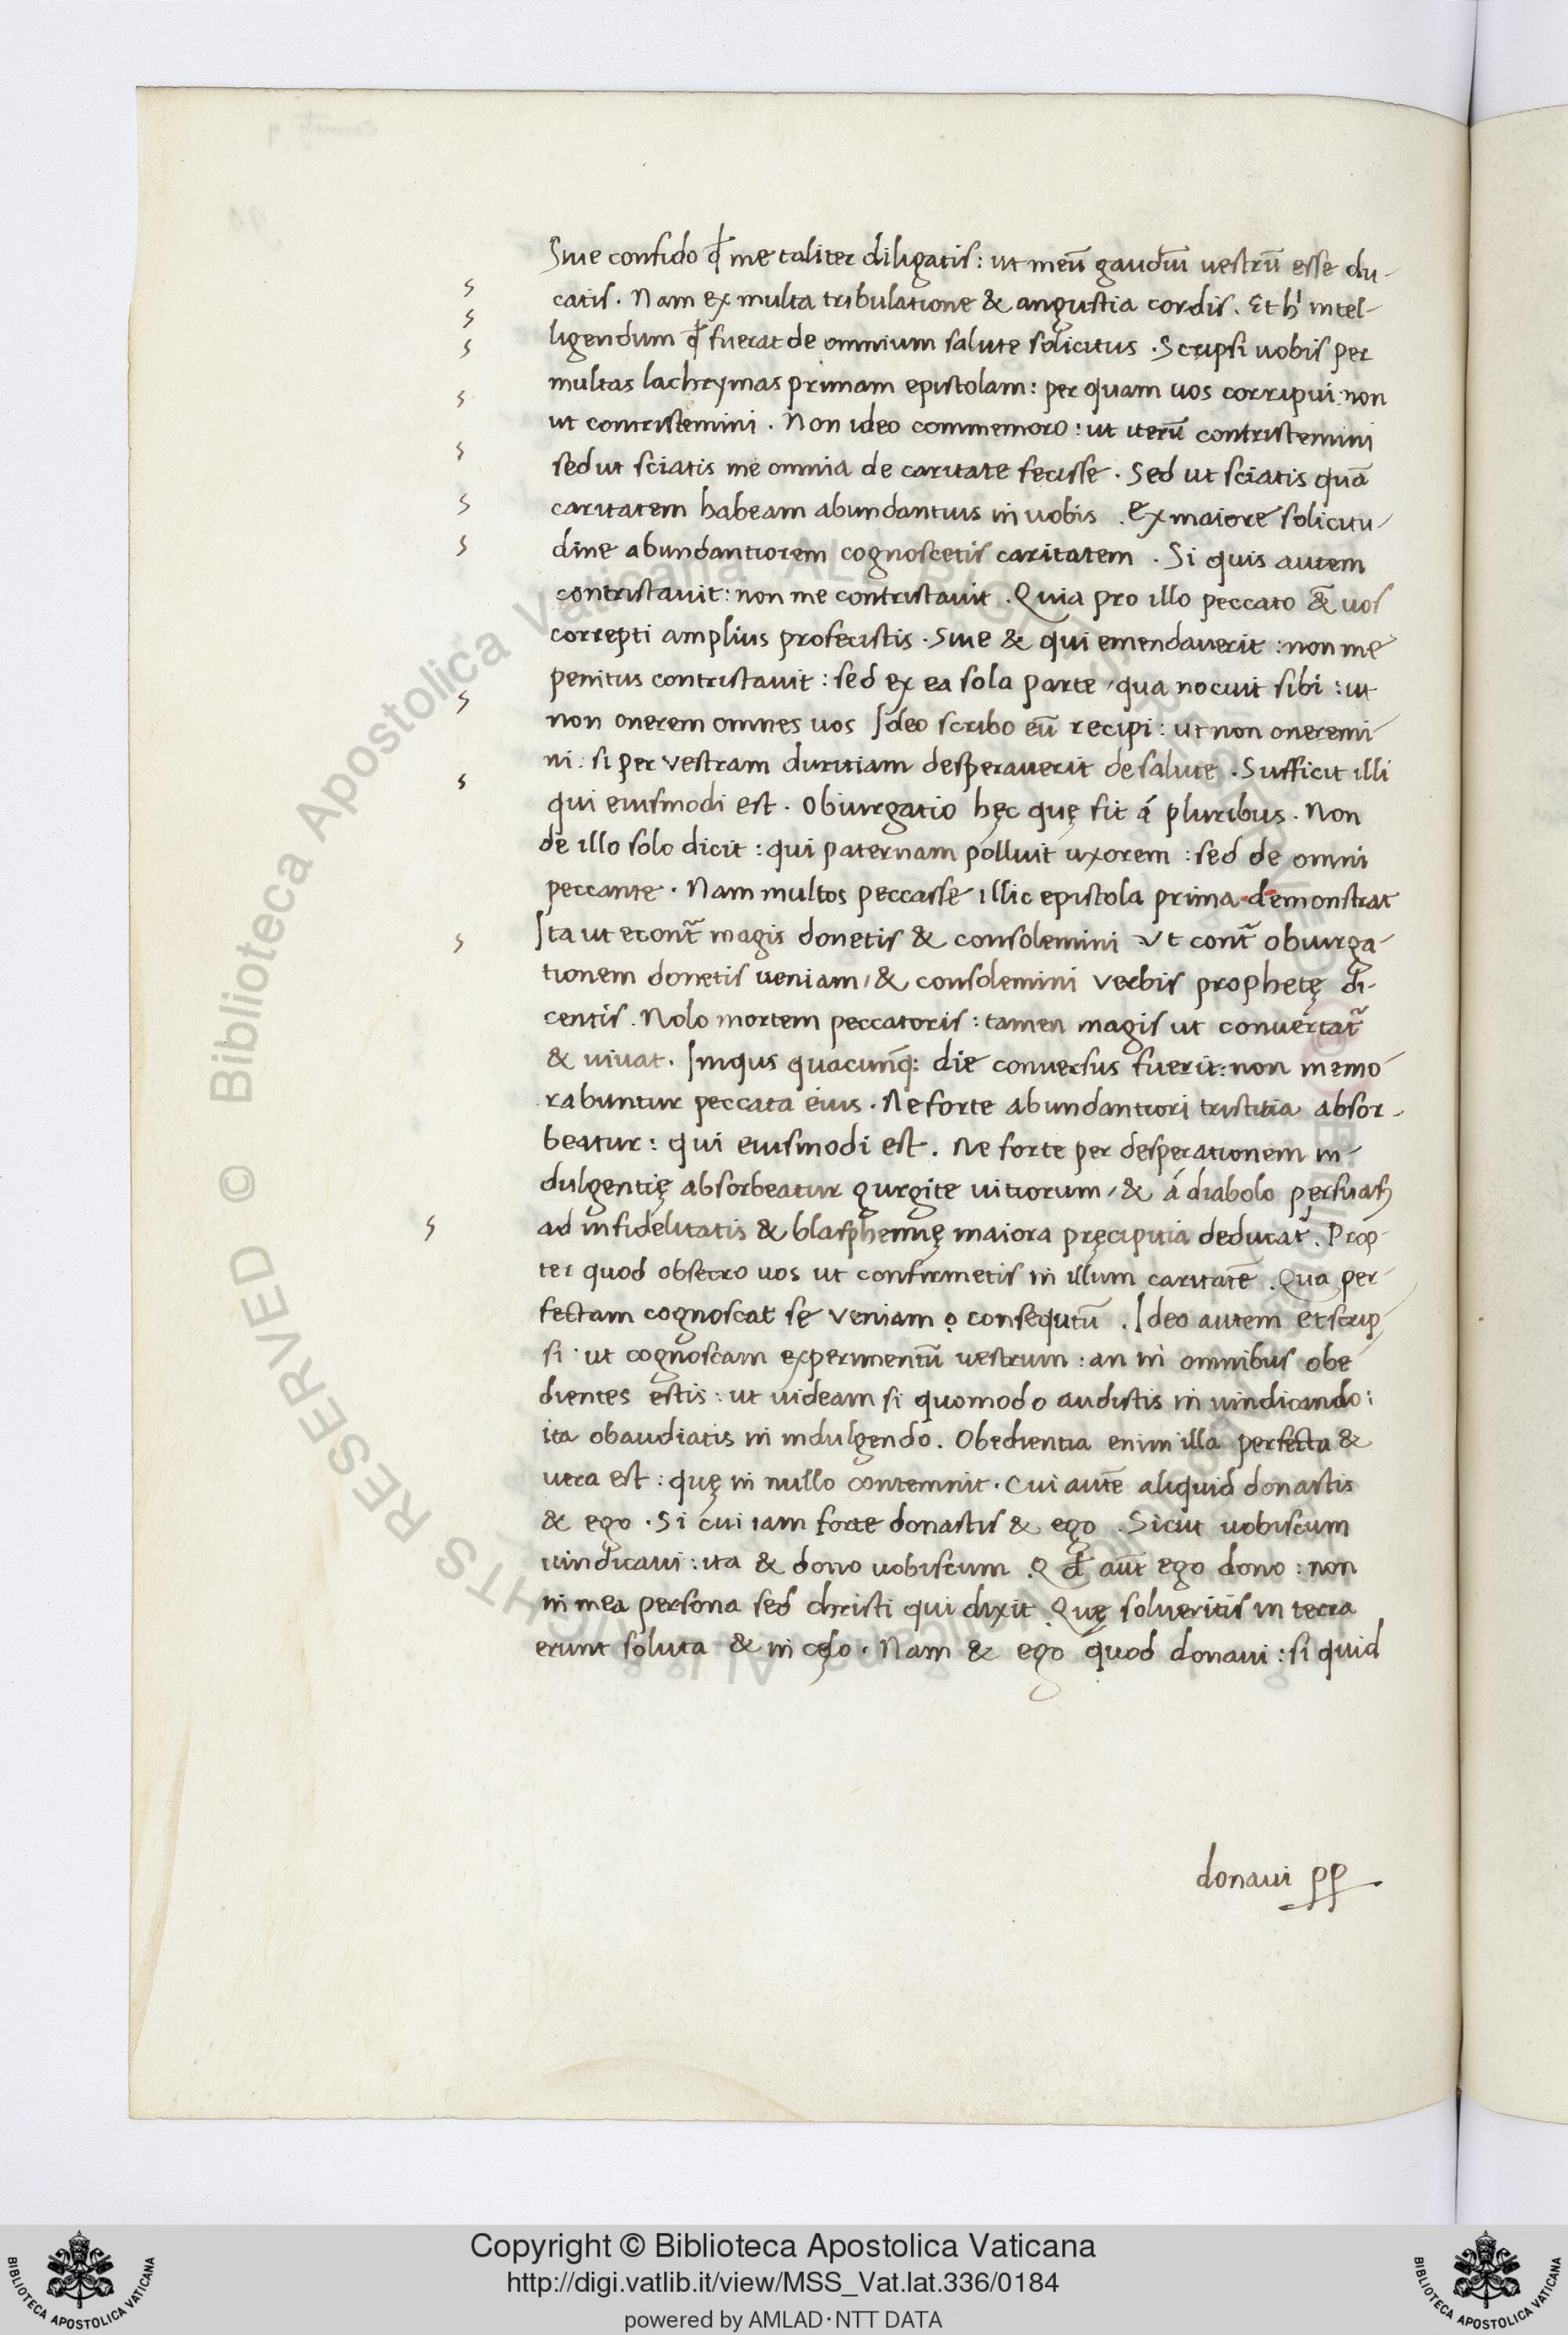 Siue confido ꝙ me taliter diligatis: ut meū gaudiū uestrū esse du-
catis. Nam ex multa tribulatione & angustia cordis. Et hꝭ intel-
ligendum ꝙ fuerat de omnium salute solicitus. Scripsi uobis per
multas lachrymas primam epistolam: per quam uos corripui: non
ut contristemini. Non ideo commemoro: ut iterū contristemini
sed ut sciatis me omnia de caritate fecisse. Sed ut sciatis quā
caritatem habeam abundantius in uobis. Ex maiore solicitu-
dine abundantiorem cognoscetis caritatem. Si quis autem
contristauit: non me contristauit. Quia pro illo peccato & uos
correpti amplius profecistis. Siue & qui emendauerit: non me
penitus contristauit: sed ex ea sola parte, qua nocuit sibi: ut
non onerem omnes uos Ideo scribo eū recipi: ut non oneremi-
ni: si per vestram duritiam desperauerit de salute. Sufficit illi
qui eiusmodi est. Obiurgatio hęc quę fit á pluribus. Non
de illo solo dicit: qui paternam polluit uxorem: sed de omni
peccante. Nam multos peccasse illic epistola prima demonstrat
Ita ut econtͣ magis donetis & consolemini Vt contͣ obiurga-
tionem donetis ueniam, & consolemini verbis prophetę di-
centis. Nolo mortem peccatoris: tamen magis ut conuertatͬ
& uiuat. Iniqus quacunqꝫ die conuersus fuerit: non memo-
rabuntur peccata eius. Ne forte abundantiori tristitia absor-
beatur: qui eiusmodi est. Ne forte per desperationem in-
dulgentię absorbeatur gurgite uitiorum, & á diabolo persuasꝰ
ad infidelitatis & blasphemię maiora pręcipitia deducatͬ. Prop-
ter quod obsecro uos ut confirmetis in illum caritatē. Qua per-
fectam cognoscat se veniam consequtū. Ideo autem et scrip-
si ut cognoscam experimentū uestrum: an in omnibus obe-
dientes estis: ut uideam si quomodo audistis in uindicando:
ita obaudiatis in indulgendo. Obedientia enim illa perfecta &
uera est: quę in nullo contemnit. Cui autē aliquid donastis
& ego. Si cui iam forte donastis & ego. Sicut uobiscum
uindicaui: ita & dono uobiscum. Qđ aūt ego dono: non
in mea persona sed christi qui dixit Quę solueritis in terra
erunt soluta & in cęlo. Nam & ego quod donaui: si quid
donaui pp
Biblioteca Apostolica Vaticana ALL RIGHTS RESERVED ©
Copyright © Biblioteca Apostolica Vaticana
http://digi.vatlib.it/view/MSS_Vat.lat.336/0184
powered by AMLAD·NTT DATA
BIBLIOTECA APOSTOLICA VATICANA
BIBLIOTECA APOSTOLICA VATICANA